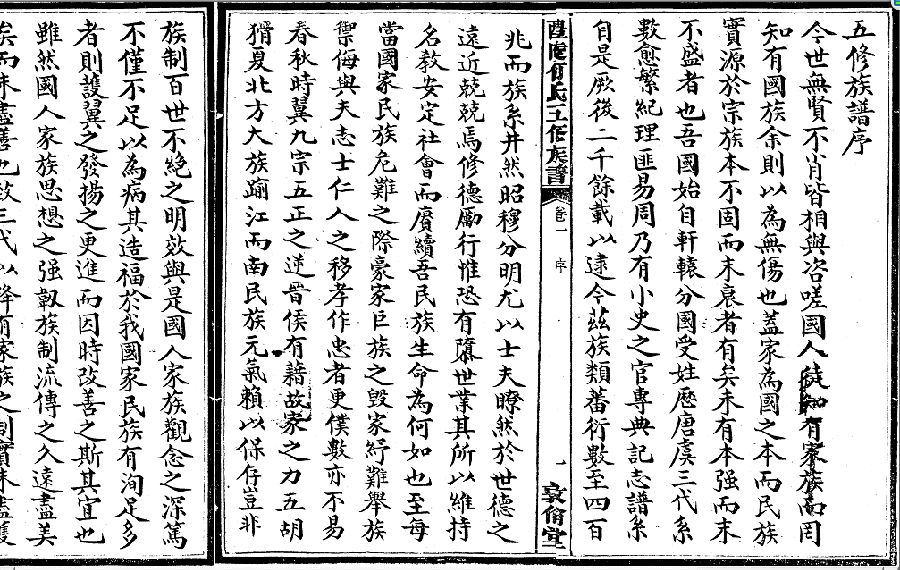 五修族譜序
今世無賢不肖皆相與咨嗟國人徒知有家族而罔
知有國族余則以為無傷也蓋家為國之本而民族
實源於宗族本不固而末衰者有矣未有本强而末
不盛者也吾國始自軒轅分國受姓歷唐虞三代系
數愈繁紀理匪易周乃有小史之官專典記志譜系
自是厥後二千餘載以逮今茲族類蕃衍數至四百
氏五修族譜 卷一 序 一 堂
兆而族系井然昭穆分明尤以士夫瞭然於世德之
遠近兢兢焉修德勵行惟恐有隳世業其所以維持
名教安定社會而賡續吾民族生命為何如也至每
當國家民族危難之際豪家巨族之毀家紓難舉族
禦侮與夫志士仁人之移孝作忠者更僕數亦不易
春秋時翼九宗五正之逆晉侯有藉故家之力五胡
猾夏北方大族踰江而南民族元氣賴以保存豈非
族制百世不絕之明效與是國人家族觀念之深篤
不僅不足以為病其造福於我國家民族有洵足多
者則護翼之發揚之更進而因時改善之斯其宜也
雖然國人家族思想之强韌族制流傳之久遠盡美
矣而未盡善也故三代以降有家族之制實未盡護